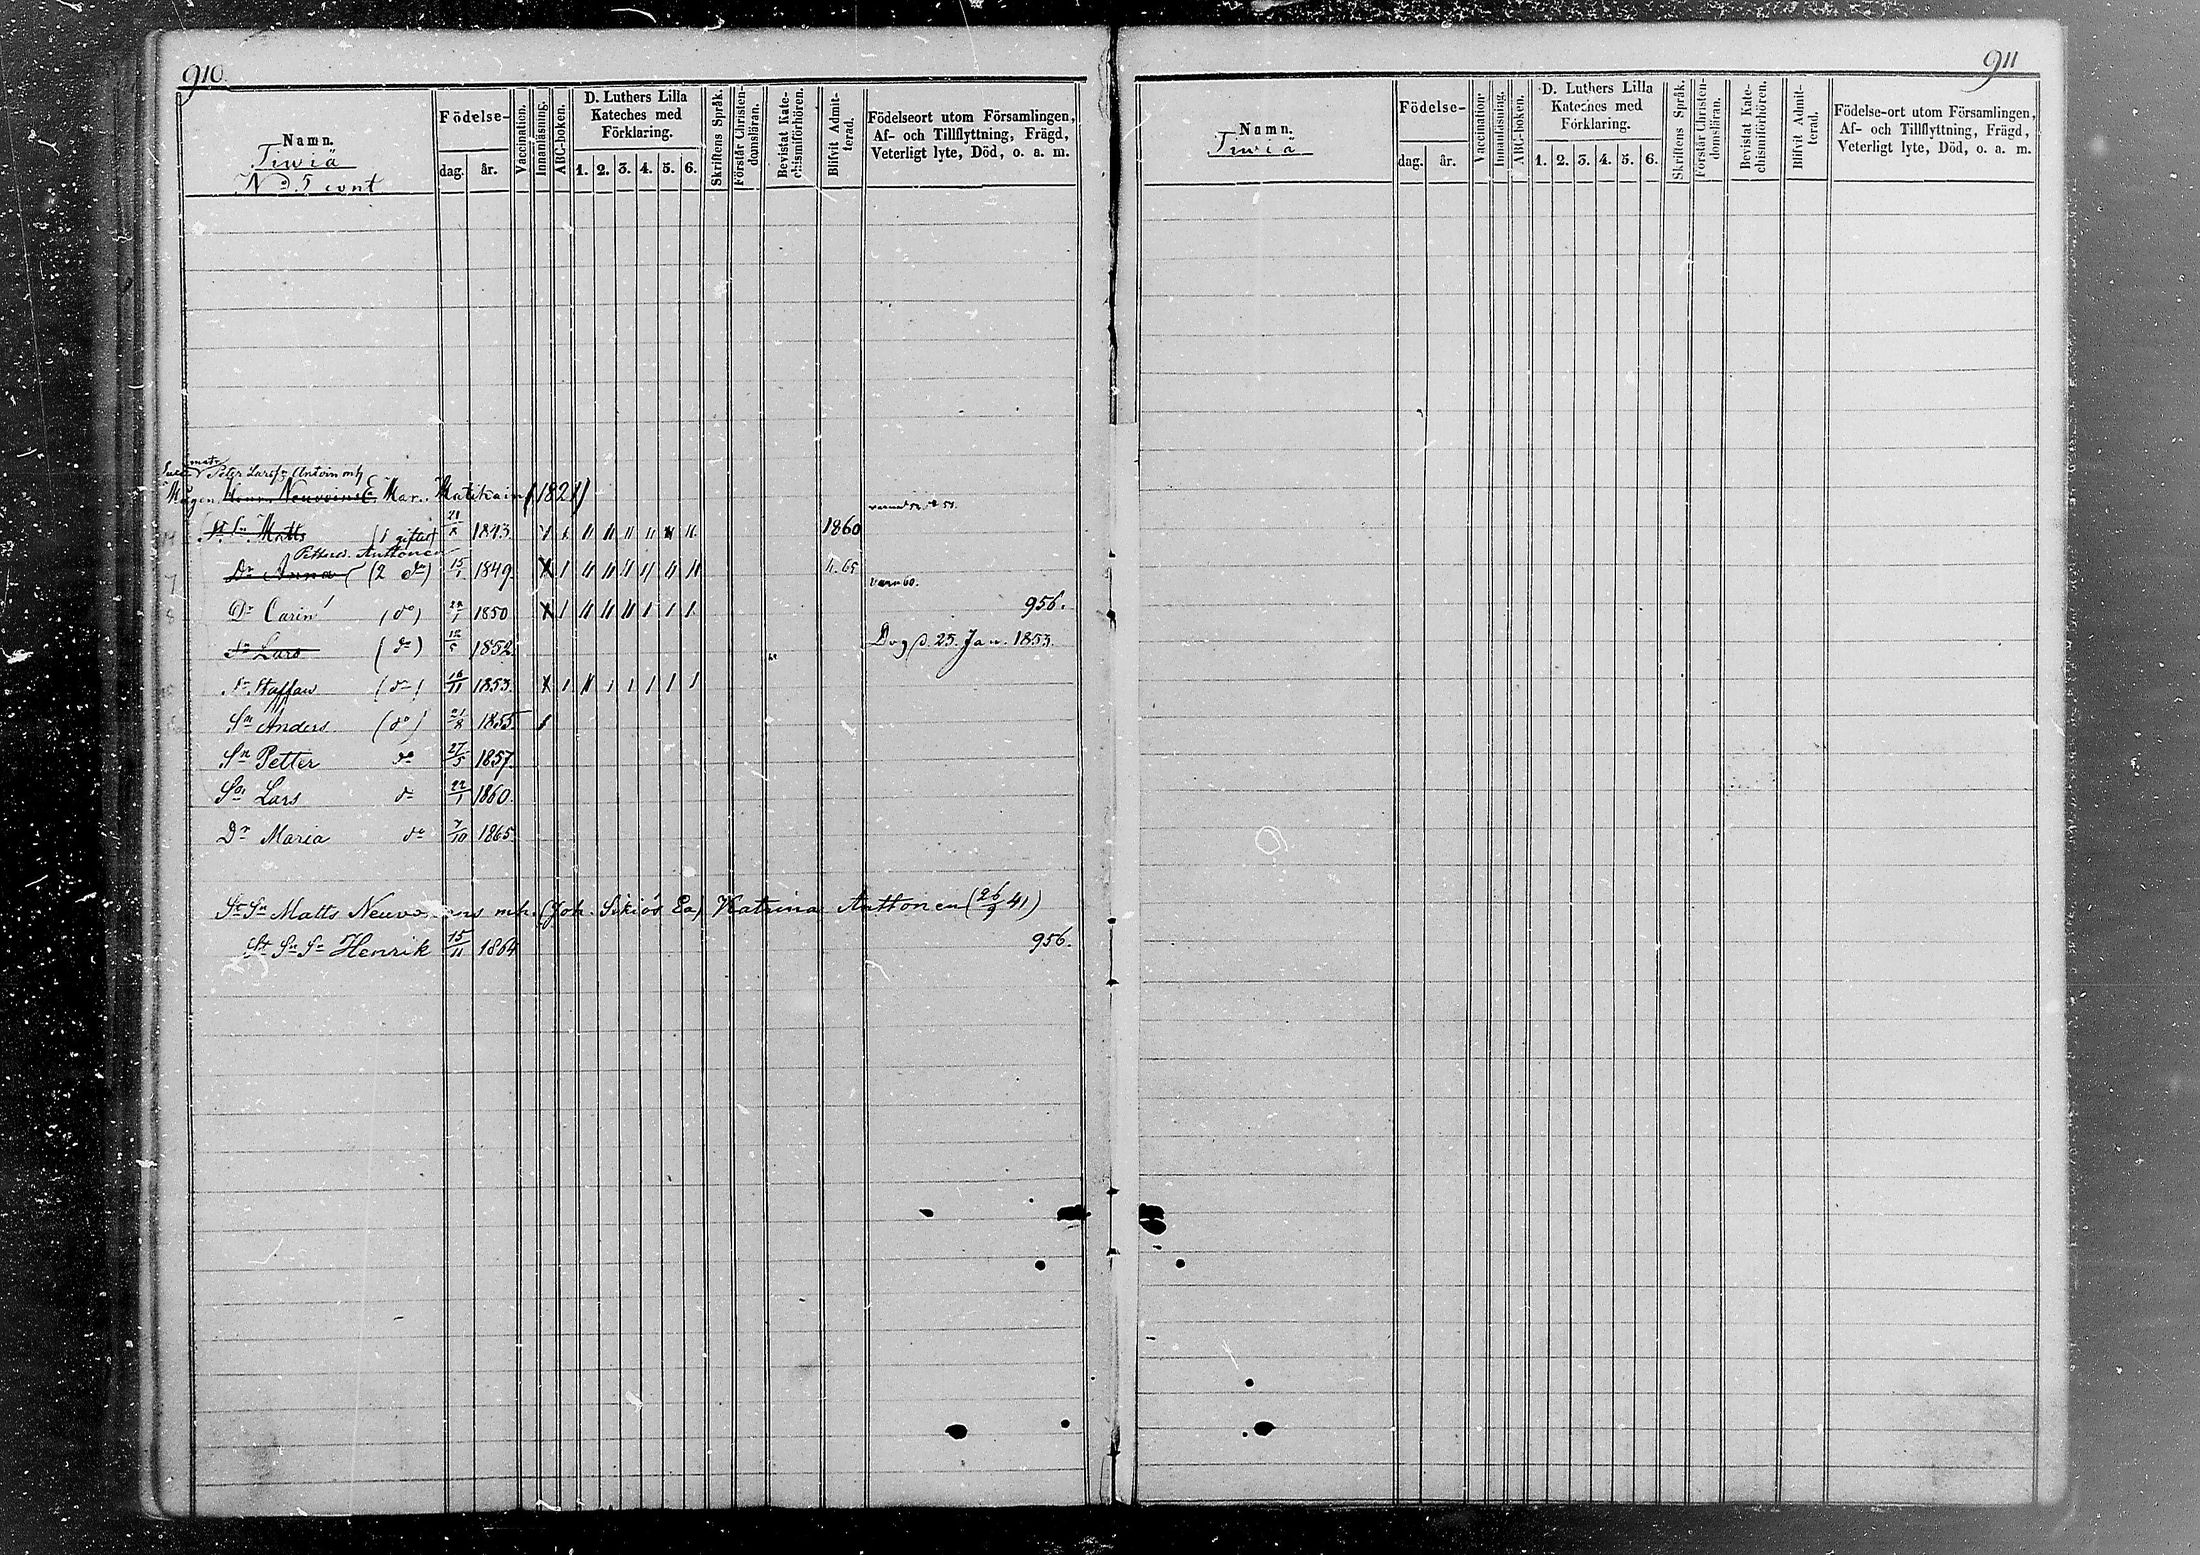 910.
Namn.
Tiwiä
N:o 5 cont
Födelse-
dag. år.
Vaccination.
Innanläsning.
ABC-boken.
D. Luthers Lilla Kateches med Förklaring.
1. 2. 3. 4. 5. 6.
Skriftens Språk.
Förstår Christendomsläran.
Bevistat Katechismiförhören.
Blifvit Admitterad.
Födelseort utom Församlingen, Af- och Tillflyttning, Frägd, Veterligt lyte, Död, o. a. m.
Peter Larsson Antoin mh
Mågen Henr. Neuvoinens E. Mar. Matikain (1821)
St. Sn Matts (1 giftet) 21/8 1843 1860
Pettersd. Anttonen
Dr Anna (2 do) 15/1 1849 11. 65
Dr Carin (do) 1850 956.
Sn Lars (do) 12/5 1852 Dog d. 25. Jan. 1853.
Sn Staffan (do) 16/11 1853
Sn Anders (do) 21/8 1855
Sn Petter do 27/5 1857
Sn Lars do 22/1 1860.
Dr Maria do 7/10 1865
St Sn Matts Neuvoinens mh. (Joh. Sikiös Ea) Katrina Anttonen (26/9 41)
St Sn Sn Henrik 15/11 1864 956.
911
Namn.
Tiwiä
Födelse-
dag. år.
Vaccination.
Innanläsning.
ABC-boken.
D. Luthers Lilla Kateches med Förklaring.
1. 2. 3. 4. 5. 6.
Skriftens Språk.
Förstår Christendomsläran.
Bevistat Katechismiförhören.
Blifvit Admitterad.
Födelse-ort utom Församlingen, Af- och Tillflyttning, Frägd, Veterligt lyte, Död, o. a. m.